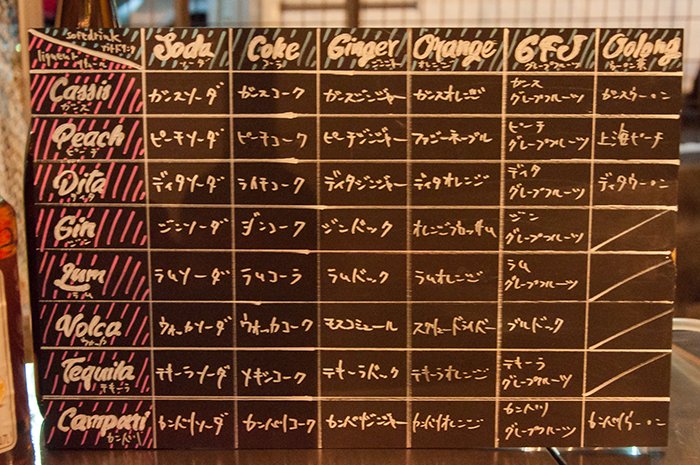 softdrink ソフトドリンク
liqueur リキュール
Soda
ソーダ
Coke
コーラ
Ginger
ジンジャー
Orange
オレンジ
GFJ
グレープフルーツ
Oolong
ウーロン茶
Cassis
カシス
カシスソーダ
カシスコーク
カシスジンジャー
カシスオレンジ
カシス
グレープフルーツ
カシスウーロン
Peach
ピーチ
ピーチソーダ
ピーチコーク
ピーチジンジャー
ファジーネーブル
ピーチ
グレープフルーツ
上海ピーチ
Dita
ディタソーダ
ライチコーク
ディタジンジャー
ディタオレンジ
ディタ
グレープフルーツ
ディタウーロン
Gin
ジン
ジンソーダ
ジンコーク
ジンバック
オレンジブロッサム
ジン
グレープフルーツ
Lum
ラム
ラムソーダ
ラムコーラ
ラムバック
ラムオレンジ
ラム
グレープフルーツ
Volca
ウォッカ
ウォッカソーダ
ウォッカコーク
モスコミュール
スクリュードライバー
ブルドック
Tequila
テキーラ
テキーラソーダ
メキシコーク
テキーラバック
テキーラオレンジ
テキーラ
グレープフルーツ
Campari
カンパリ
カンパリソーダ
カンパリコーク
カンパリジンジャー
カンパリオレンジ
カンパリ
グレープフルーツ
カンパリウーロン